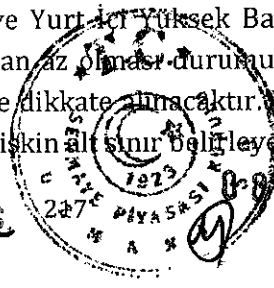 ve Yurt İçi Yüksek Ba
an az olması durumu
e dikkate alınacaktır.
işkin alt sınır belirleye
SERMAYE PİYASASI KURULU
1973
217